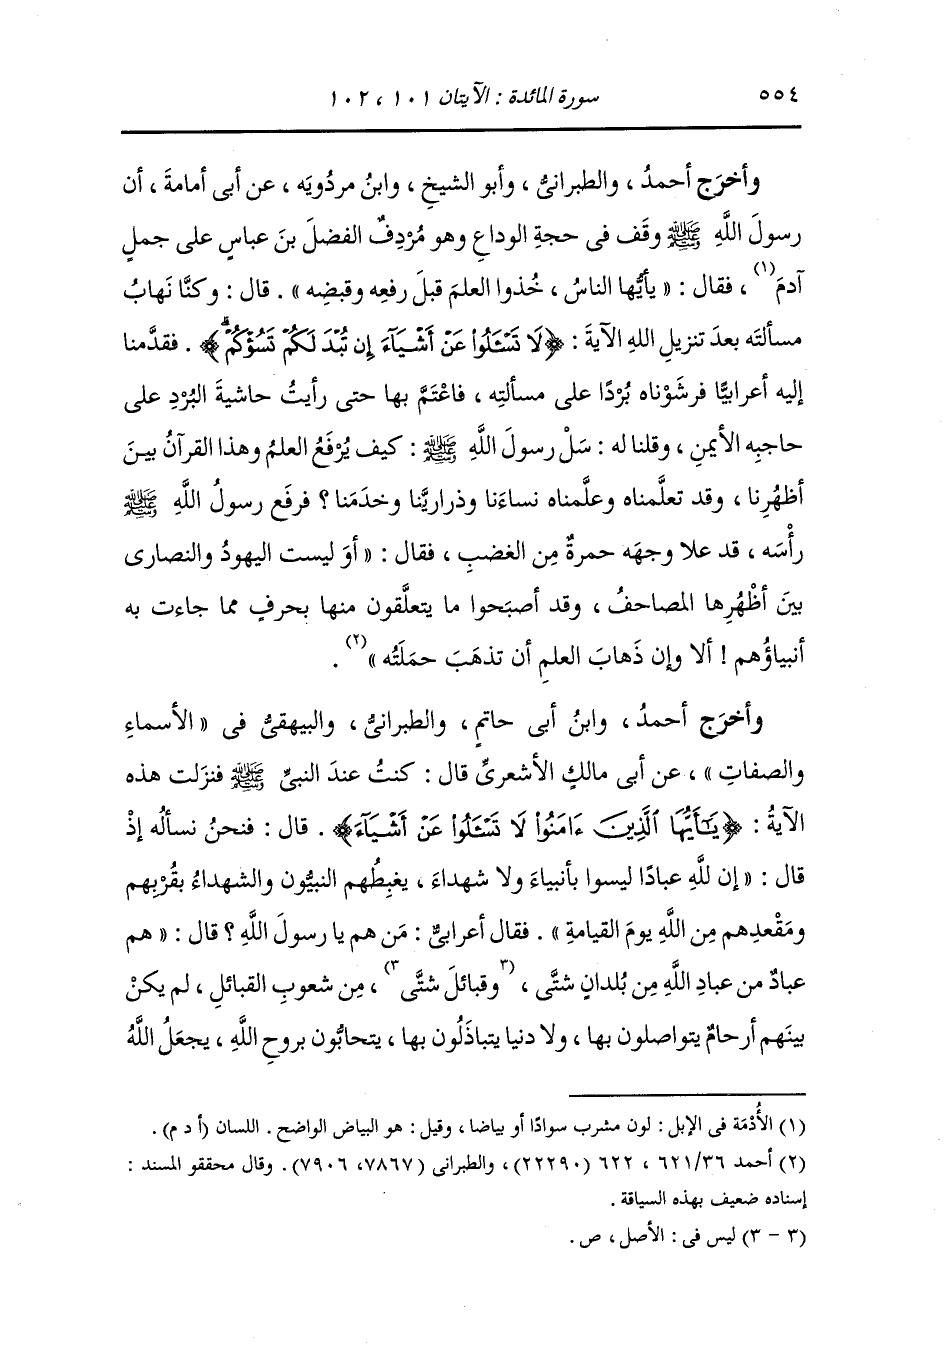 ٥٥٤ سورة المائدة : الآيتان ١٠١ ، ١٠٢
وأخرَج أحمدُ ، والطبرانىُّ ، وأبو الشيخِ ، وابنُ مردُويَه ، عن أبى أمامةَ ، أن
رسولَ اللَّهِ ﷺ وقَف فى حجةِ الوداعِ وهو مُرْدِفٌ الفضلَ بنَ عباسٍ على جملٍ
آدمَ(١) ، فقال : « يأيُّها الناسُ ، خُذوا العلمَ قبلَ رفعِه وقبضِه » . قال : وكنَّا نَهابُ
مسألتَه بعدَ تنزيلِ اللهِ الآيةَ : ﴿لَا تَسْـَٔلُوا۟ عَنْ أَشْيَآءَ إِن تُبْدَ لَكُمْ تَسُؤْكُمْ ۖ﴾ . فقدَّمنا
إليه أعرابيًّا فرشَوْناه بُرْدًا على مسألتِه ، فاعْتَمَّ بها حتى رأيتُ حاشيةَ البُرْدِ على
حاجبِه الأيمنِ ، وقلنا له : سَلْ رسولَ اللَّهِ ﷺ : كيف يُرْفَعُ العلمُ وهذا القرآنُ بينَ
أظهُرِنا ، وقد تعلَّمناه وعلَّمناه نساءَنا وذراريَّنا وخدَمَنا ؟ فرفَع رسولُ اللَّهِ ﷺ
رأْسَه ، قد علا وجهَه حمرةٌ مِن الغضبِ ، فقال : « أوَ ليست اليهودُ والنصارى
بينَ أظْهُرِها المصاحفُ ، وقد أصبَحوا ما يتعلَّقون منها بحرفٍ مما جاءت به
أنبياؤُهم ! ألا وإن ذَهابَ العلمِ أن تذهَبَ حملَتُه »(٢) .
وأخرَج أحمدُ ، وابنُ أبى حاتمٍ ، والطبرانىُّ ، والبيهقىُّ فى « الأسماءِ
والصفاتِ » ، عن أبى مالكٍ الأشعرىِّ قال : كنتُ عندَ النبىِّ ﷺ فنزَلت هذه
الآيةُ : ﴿يَـٰٓأَيُّهَا ٱلَّذِينَ ءَامَنُوا۟ لَا تَسْـَٔلُوا۟ عَنْ أَشْيَآءَ﴾ . قال : فنحنُ نسألُه إذْ
قال : « إن للَّهِ عبادًا ليسوا بأنبياءَ ولا شهداءَ ، يغبِطُهم النبيُّون والشهداءُ بقُرْبِهم
ومَقْعدِهم مِن اللَّهِ يومَ القيامةِ » . فقال أعرابىٌّ : مَن هم يا رسولَ اللَّهِ ؟ قال : « هم
عبادٌ من عبادِ اللَّهِ مِن بُلدانٍ شتَّى ، (٣وقبائلَ شتَّى٣) ، مِن شعوبِ القبائلِ ، لم يكنْ
بينَهم أرحامٌ يتواصلون بها ، ولا دنيا يتباذَلُون بها ، يتحابُّون بروحِ اللَّهِ ، يجعَلُ اللَّهُ
(١) الأُدْمَة فى الإبل : لون مشرب سوادًا أو بياضا ، وقيل : هو البياض الواضح . اللسان (أ د م) .
(٢) أحمد ٦٢١/٣٦ ، ٦٢٢ (٢٢٢٩٠) ، والطبرانى (٧٨٦٧، ٧٩٠٦) . وقال محققو المسند :
إسناده ضعيف بهذه السياقة .
(٣ - ٣) ليس فى : الأصل ، ص .